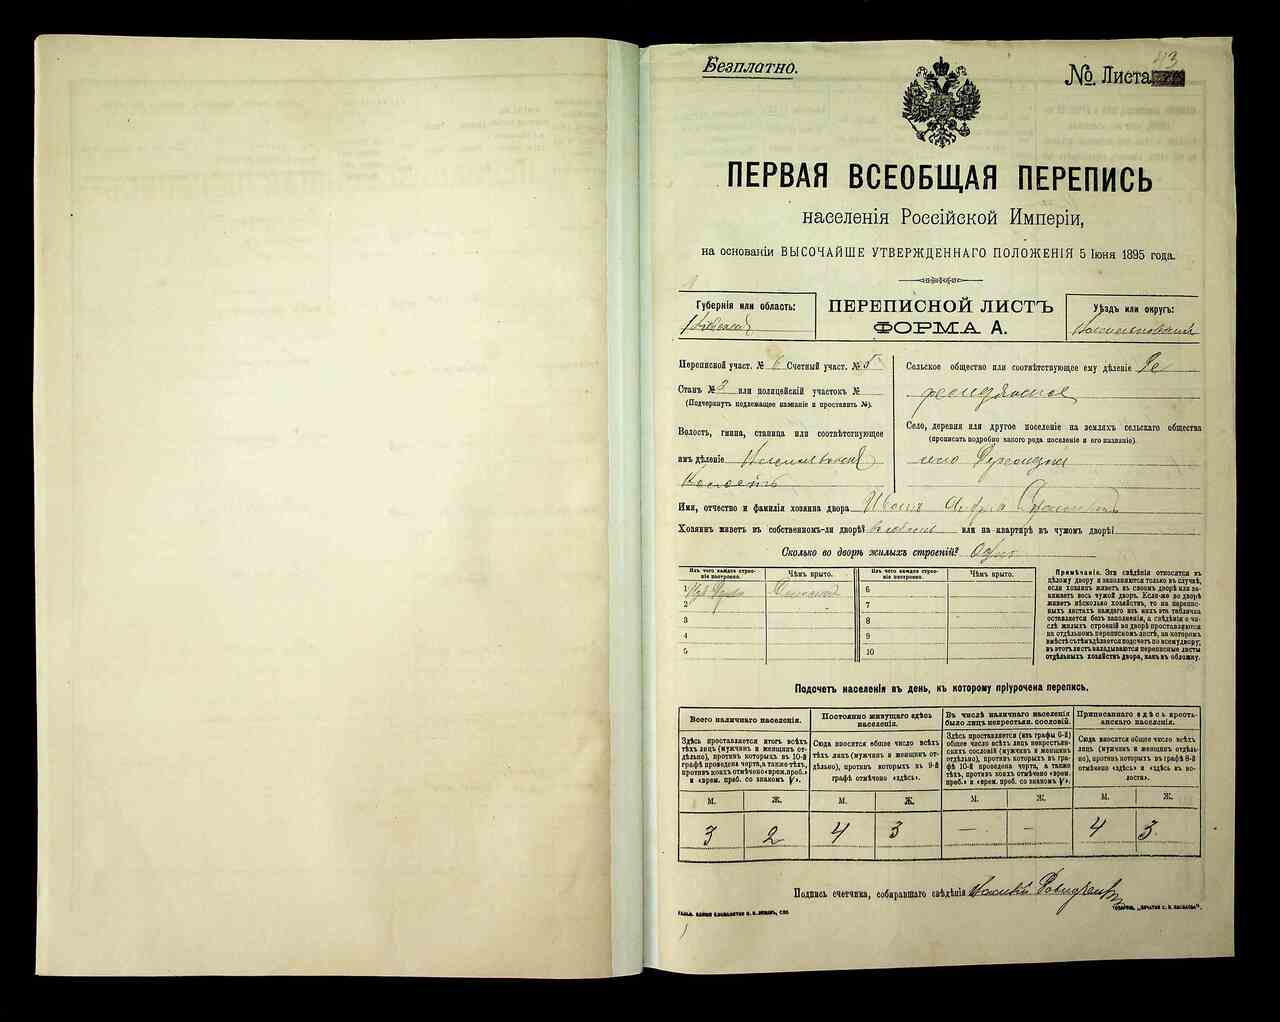 Безплатно.
№ Листа 43
ПЕРВАЯ ВСЕОБЩАЯ ПЕРЕПИСЬ
населенія Россійской Имперіи,
на основаніи ВЫСОЧАЙШЕ УТВЕРЖДЕННАГО ПОЛОЖЕНІЯ 5 Іюня 1895 года.
Губернія или область:
Кіевская
ПЕРЕПИСНОЙ ЛИСТЪ
ФОРМА А.
Уѣздъ или округъ:
Васильковскій
Переписной участ. № 6 Счетный участ. № 5
Станъ № 3 или полицейскій участокъ №
(Подчеркнуть подлежащее названіе и проставить №).
Волость, гмина, станица или соотвѣтствующее
имъ дѣленіе
Волость
Сельское общество или соотвѣтствующее ему дѣленіе
Село, деревня или другое поселеніе на земляхъ сельскаго общества
(прописать подробно какого рода поселеніе и его названіе).
село
Имя, отчество и фамилія хозяина двора
Хозяинъ живетъ въ собственномъ-ли дворѣ? или на квартирѣ въ чужомъ дворѣ?
Сколько во дворѣ жилыхъ строеній? Одно
Изъ чего каждое строеніе построено.
Чѣмъ крыто.
Изъ чего каждое строеніе построено.
Чѣмъ крыто.
1 Изъ дерева Соломой
2
3
4
5
6
7
8
9
10
Примѣчаніе. Эти свѣдѣнія относятся къ
цѣлому двору и заполняются только въ случаѣ,
если хозяинъ живетъ въ своемъ дворѣ или занимаетъ
весь чужой дворъ. Если-же во дворѣ
живетъ нѣсколько хозяйствъ, то на переписныхъ
листахъ каждаго изъ нихъ эта табличка
оставляется безъ заполненія, а свѣдѣнія о числѣ
жилыхъ строеній во дворѣ проставляются
на отдѣльномъ переписномъ листѣ, на которомъ
вмѣстѣ съ тѣмъ дѣлается подсчетъ по всему двору;
въ этотъ листъ вкладываются переписные листы
отдѣльныхъ хозяйствъ двора, какъ въ обложку.
Подсчетъ населенія въ день, къ которому пріурочена перепись.
Всего наличнаго населенія.
Постоянно живущаго здѣсь населенія.
Въ числѣ наличнаго населенія было лицъ некрестьян. сословій.
Приписаннаго здѣсь крестьянскаго населенія.
Здѣсь проставляется итогъ всѣхъ тѣхъ лицъ (мужчинъ и женщинъ отдѣльно), противъ которыхъ въ 10-й графѣ проведена черта, а также тѣхъ, противъ коихъ отмѣчено «врем. проб.» и «врем. преб. со знакомъ V».
Сюда вносится общее число всѣхъ тѣхъ лицъ (мужчинъ и женщинъ отдѣльно), противъ которыхъ въ 9-й графѣ отмѣчено «здѣсь».
Здѣсь проставляется (изъ графы 6-й) общее число всѣхъ лицъ некрестьянскихъ сословій (мужчинъ и женщинъ отдѣльно), противъ которыхъ въ графѣ 10-й проведена черта, а также тѣхъ, противъ коихъ отмѣчено «врем. преб.» и «врем. преб. со знакомъ V».
Сюда вносится общее число всѣхъ лицъ (мужчинъ и женщинъ отдѣльно), противъ которыхъ въ графѣ 8-й отмѣчено «здѣсь» и «здѣсь въ волости».
М. Ж. М. Ж. М. Ж. М. Ж.
3 2 4 3 — — 4 3
Подпись счетчика, собиравшаго свѣдѣнія